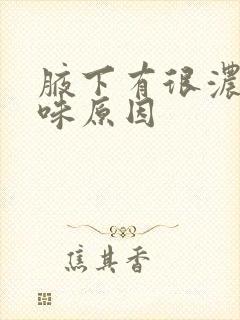 腋下有很濃
味原因
焦其香